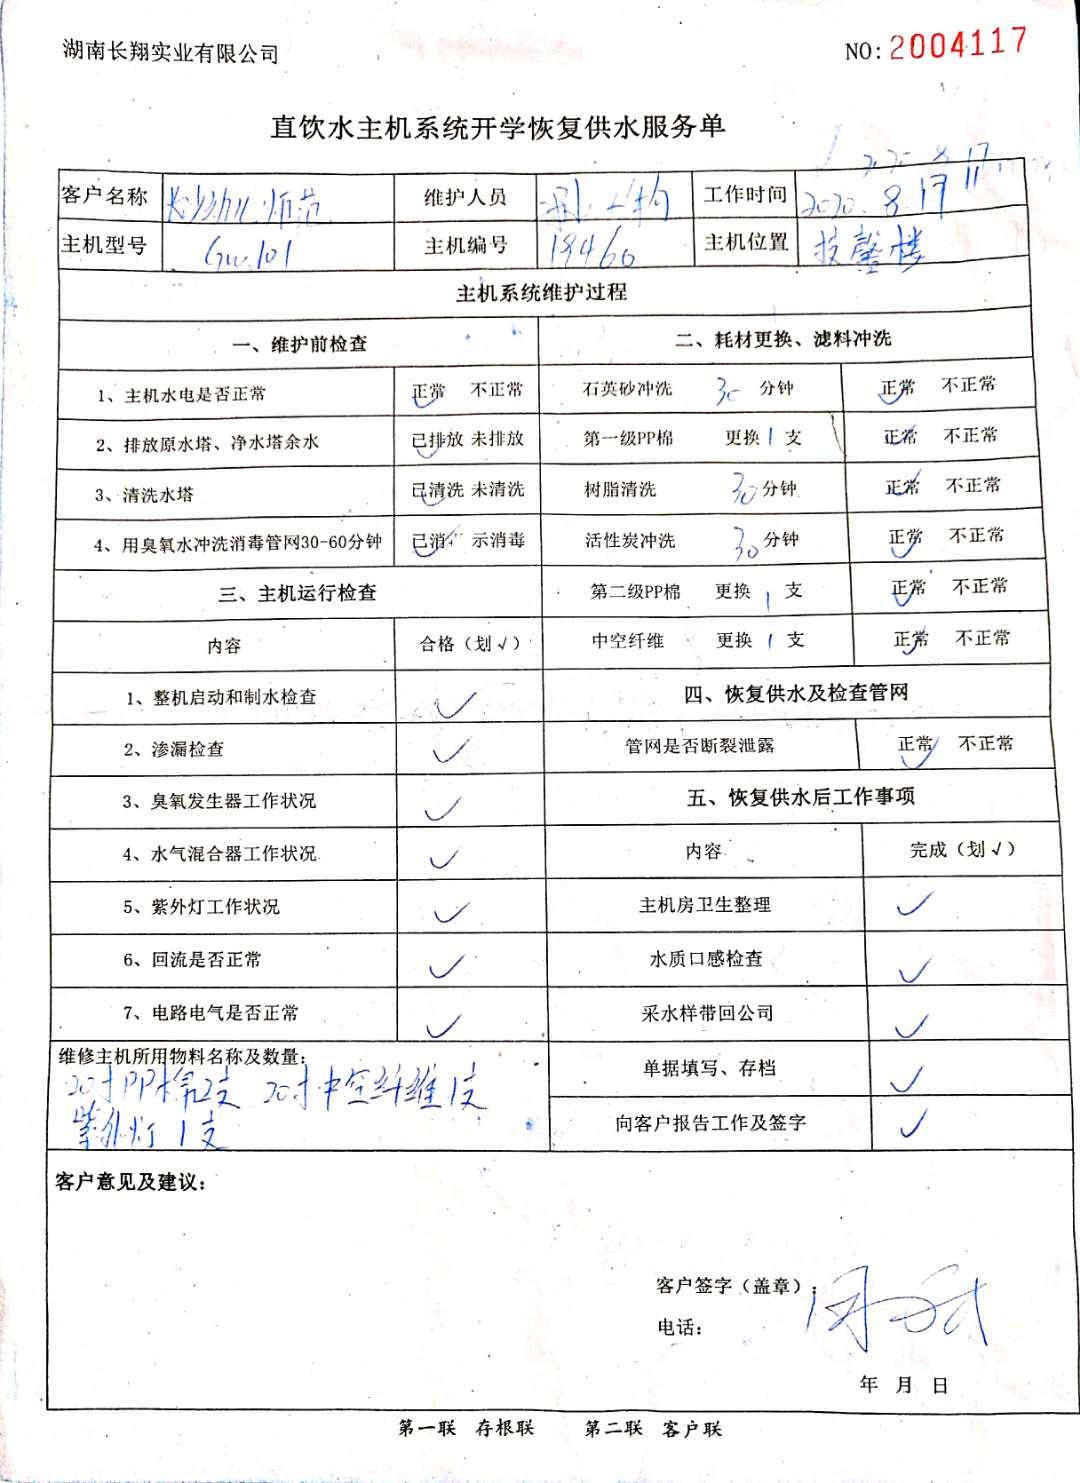 湖南长翔实业有限公司
NO: 2004117
直饮水主机系统开学恢复供水服务单
客户名称 师范 维护人员 工作时间 2020.8.17
主机型号 Gw.101 主机编号 18460 主机位置 技馨楼
主机系统维护过程
一、维护前检查 二、耗材更换、滤料冲洗
1、主机水电是否正常 正常 不正常 石英砂冲洗 30 分钟 正常 不正常
2、排放原水塔、净水塔余水 已排放 未排放 第一级PP棉 更换 1 支 正常 不正常
3、清洗水塔 已清洗 未清洗 树脂清洗 30 分钟 正常 不正常
4、用臭氧水冲洗消毒管网30-60分钟 已消 示消毒 活性炭冲洗 30 分钟 正常 不正常
三、主机运行检查 第二级PP棉 更换 1 支 正常 不正常
内容 合格（划√） 中空纤维 更换 1 支 正常 不正常
1、整机启动和制水检查 ✓ 四、恢复供水及检查管网
2、渗漏检查 ✓ 管网是否断裂泄露 正常 不正常
3、臭氧发生器工作状况 ✓ 五、恢复供水后工作事项
4、水气混合器工作状况 ✓ 内容 完成（划√）
5、紫外灯工作状况 ✓ 主机房卫生整理 ✓
6、回流是否正常 ✓ 水质口感检查 ✓
7、电路电气是否正常 ✓ 采水样带回公司 ✓
维修主机所用物料名称及数量： 单据填写、存档 ✓
20寸PP棉2支 20寸中空纤维1支
紫外灯 1支 向客户报告工作及签字 ✓
客户意见及建议：
客户签字（盖章）：
电话：
年 月 日
第一联 存根联 第二联 客户联